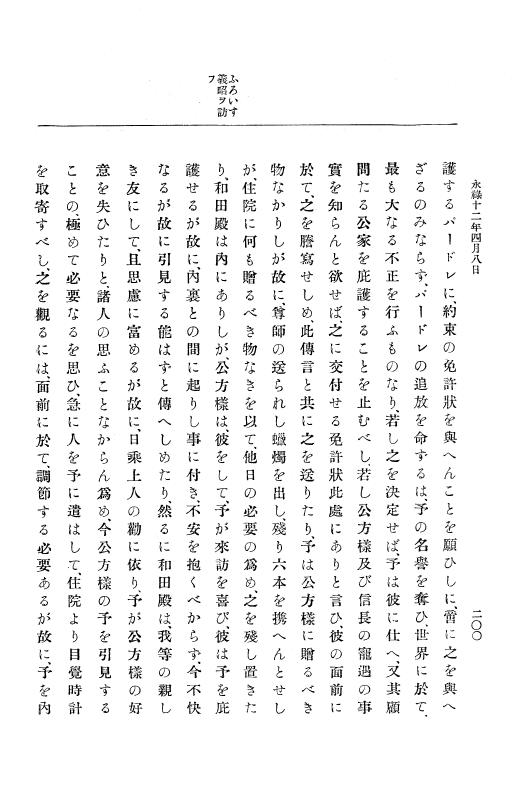 永祿十二年四月八日
二〇〇
ふろいす
義昭ヲ訪
フ
護するパードレに、約束の免許狀を與へんことを願ひしに、啻に之を與へ
ざるのみならず、パードレの追放を命ずるは、予の名譽を奪ひ、世界に於て、
最も大なる不正を行ふものなり、若し之を決定せば、予は彼に仕へ、又其顧
問たる公家を庇護することを止むべし、若し公方樣及び信長の寵遇の事
實を知らんと欲せば、之に交付せる免許狀此處にありと言ひ、彼の面前に
於て、之を謄寫せしめ、此傳言と共に之を送りたり、予は公方樣に贈るべき
物なかりしが故に、尊師の送られし蠟燭を出し、殘り六本を携へんとせし
が、住院に何も贈るべき物なきを以て、他日の必要の爲め、之を殘し置きた
り、和田殿は內にありしが、公方樣は、彼をして、予が來訪を喜び、彼は予を庇
護せるが故に、內裏との間に起りし事に付き、不安を抱くべからず、今不快
なるが故に引見する能はずと傳へしめたり、然るに和田殿は、我等の親し
き友にして、且思慮に富めるが故に、日乘上人の勸に依り予が公方樣の好
意を失ひたりと、諸人の思ふことなからん爲め今公方樣の予を引見する
ことの、極めて必要なるを思ひ、急に人を予に遣はして、住院より目覺時計
を取寄すべし、之を觀るには、面前に於て、調節する必要あるが故に、予を內